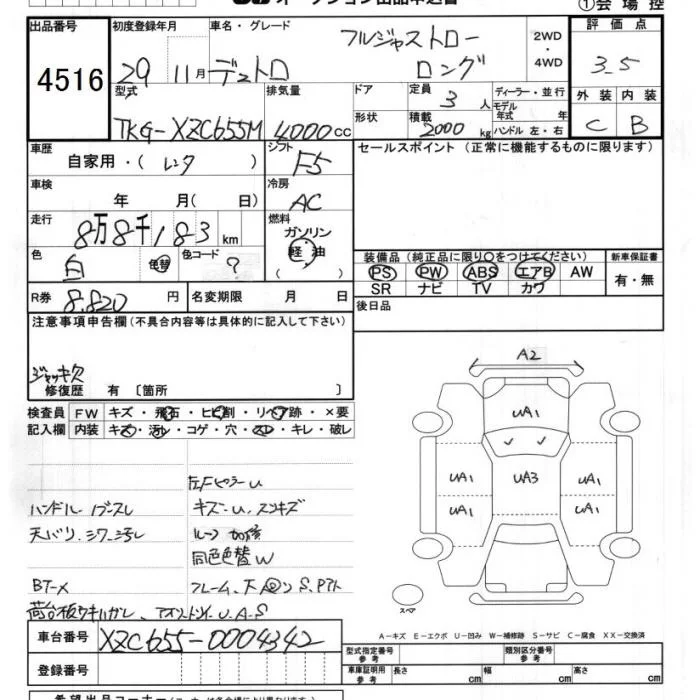 オークション出品申込書
①会場控
出品番号
4516
初度登録年月
29 11月
車名・グレード
デュトロ
フルジャストロー
ロング
2WD
・
4WD
評価点
3.5
外装 内装
C B
型式
TKG-XZC655M
排気量
4000cc
ドア
形状
定員
3人
積載
2000kg
ディーラー・並行
モデル
年式 年
ハンドル 左・右
車歴
自家用・(レンタ)
シフト
F5
セールスポイント (正常に機能するものに限ります)
車検
年 月( 日)
冷房
AC
走行
8万8千183km
燃料
ガソリン
軽油
( )
色
白
色替
色コード
?
装備品 (純正品に限り○をつけてください)
PS PW ABS エアB AW
SR ナビ TV カワ
新車保証書
有・無
R券
8,820円
名変期限 月 日
後日品
注意事項申告欄 (不具合内容等は具体的に記入して下さい)
ジャッキ欠
修復歴 有 〔箇所 〕
検査員
記入欄
FW キズ・飛石・ヒビ割・リペア跡・×要
内装 キズ・汚レ・コゲ・穴・スレ・キレ・破レ
左Fピラーu
ハンドル
キズ~u、スリキズ
天バリ、シワ、汚レ
ルーフ
同色色替W
BT-X
フレーム、下 S、Pアト
U.A.S
A2
UA1
UA1 UA3 UA1
UA1 UA1
スペア
A-キズ E-エクボ U-凹み W-補修跡 S-サビ C-腐食 XX-交換済
車台番号
XZC655-0004342
登録番号
型式指定番号
参考
類別区分番号
参考
車庫証明用
参考
長さ cm
幅 cm
高さ cm